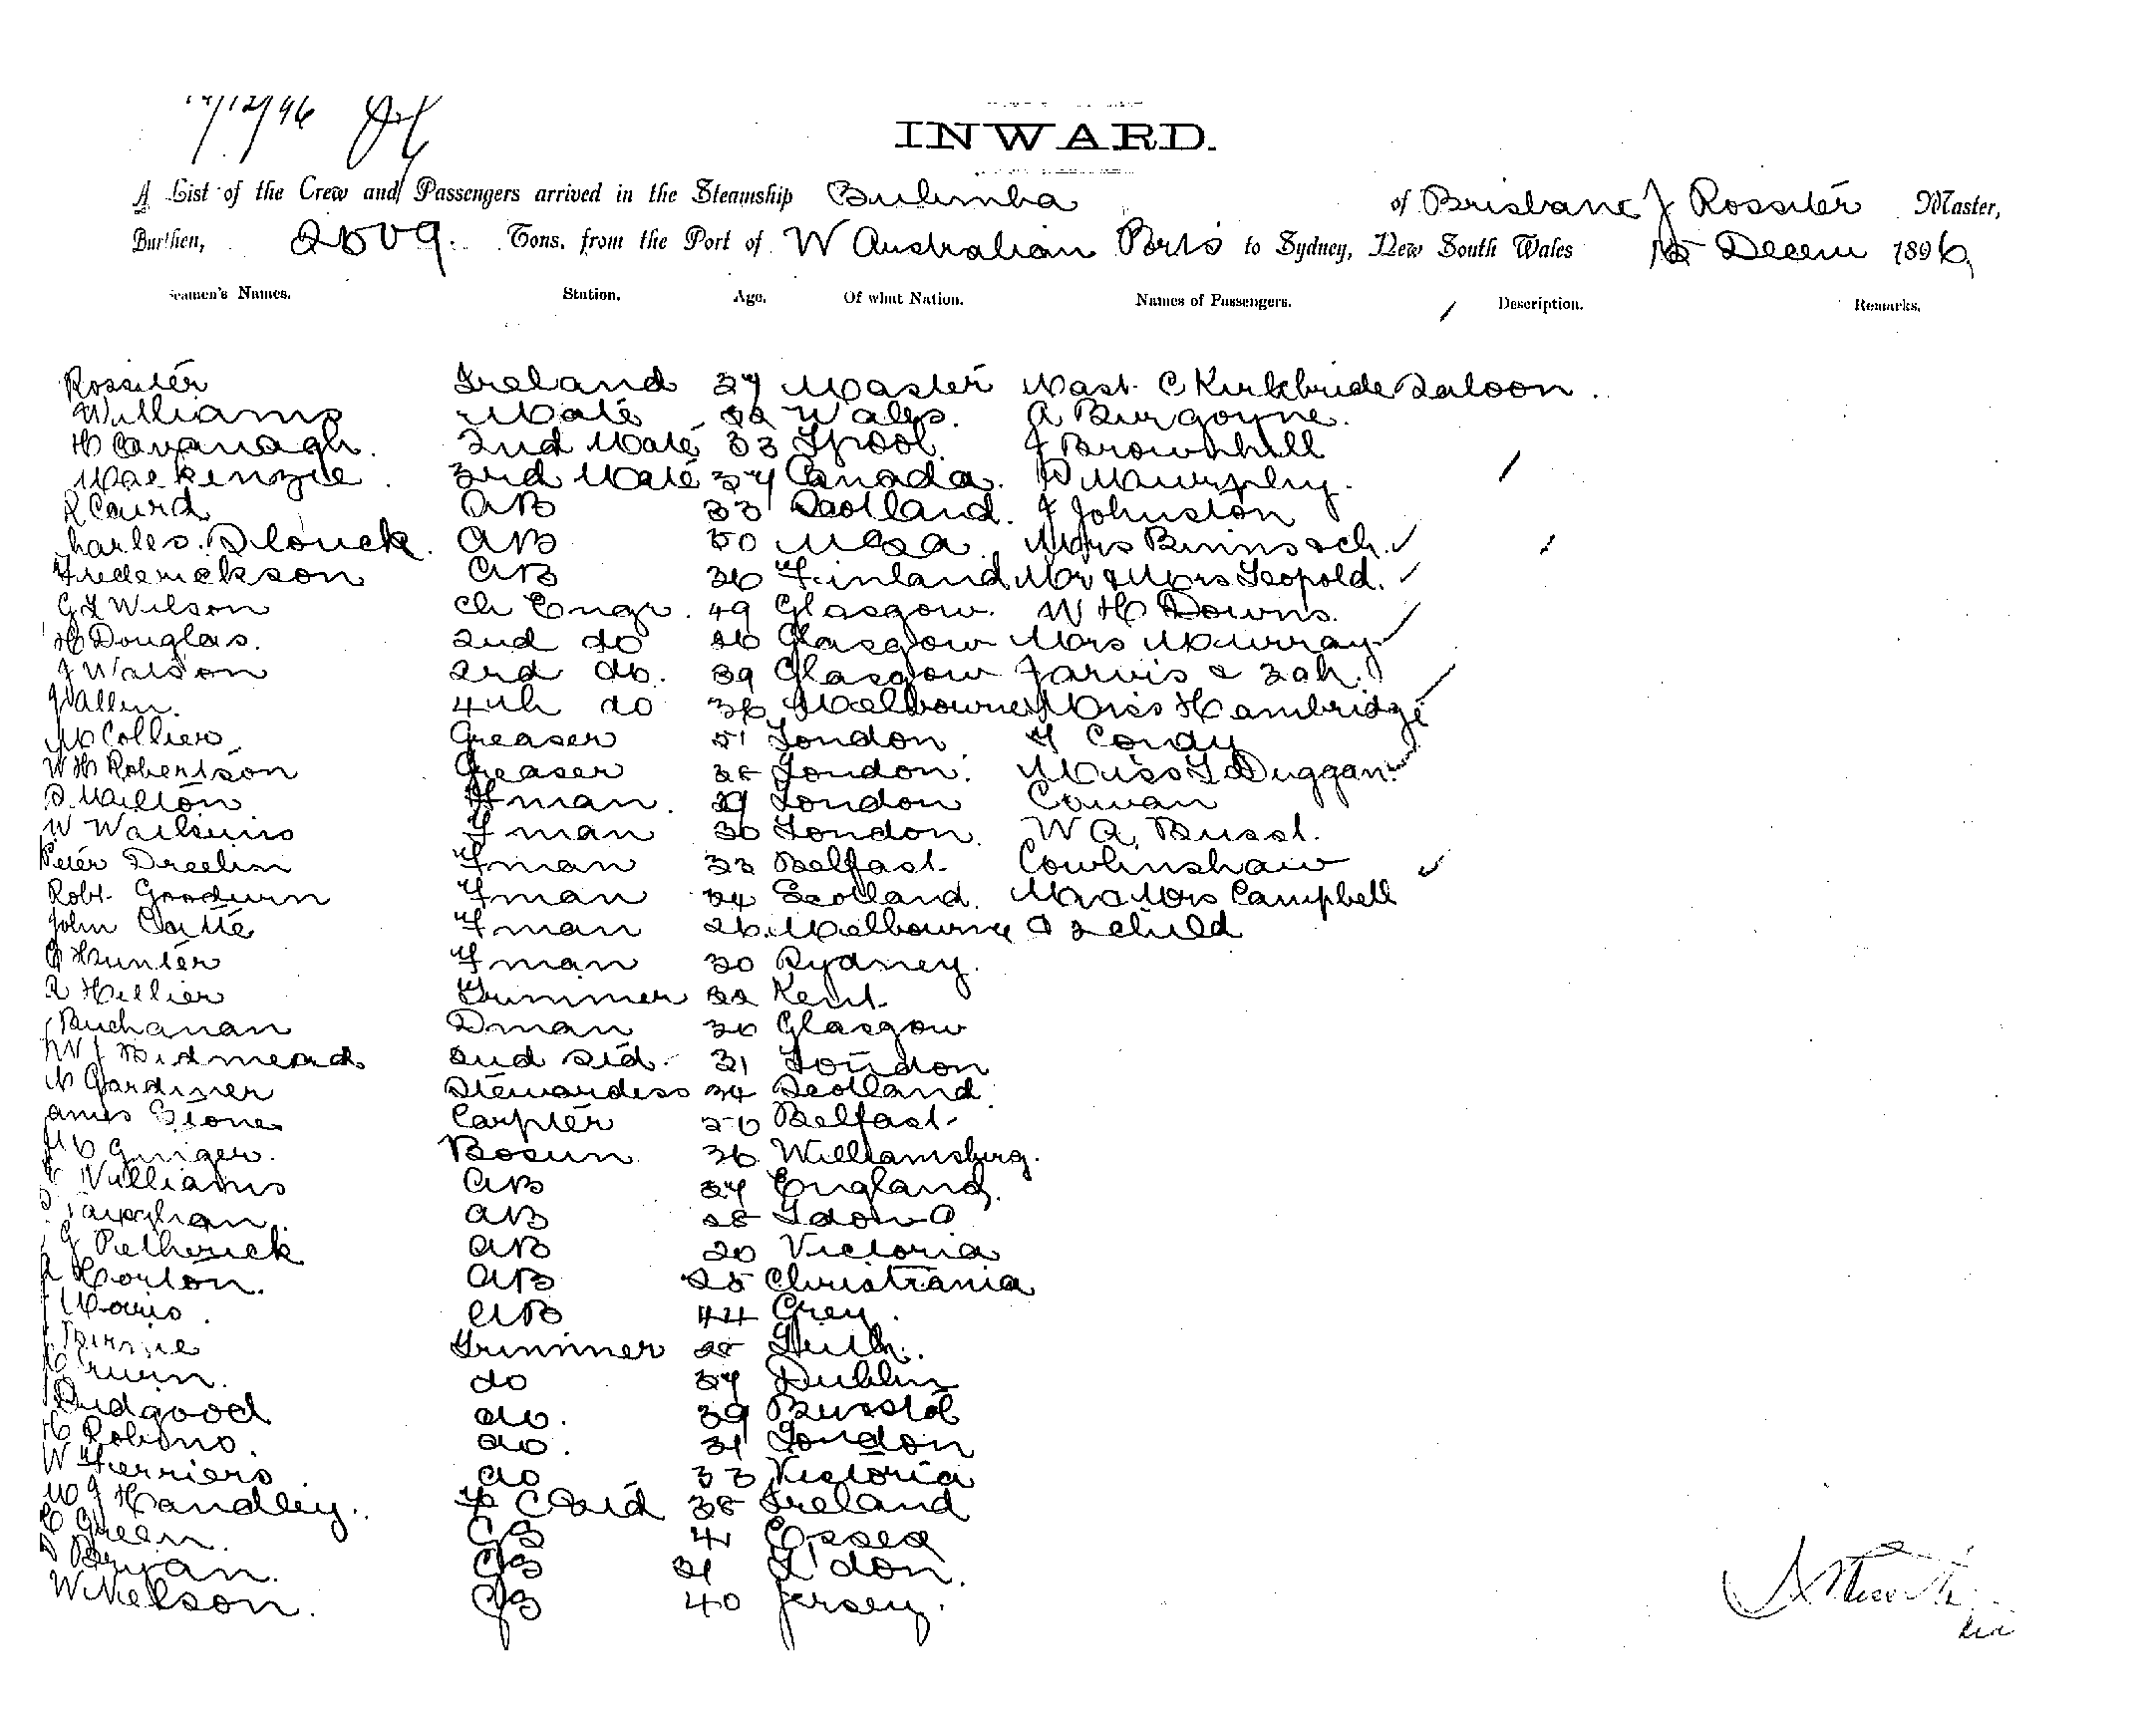 INWARD.
A List of the Crew and Passengers arrived in the Steamship Bulimba of Brisbane J Rossiter Master,
Burthen, Tons, from the Port of W Australian Ports to Sydney, New South Wales 15 Decem 1896
Seamen's Names. Station. Age. Of what Nation. Names of Passengers. Description. Remarks.
Rossiter Ireland 37 Master Mast. C Kirkbride Saloon.
Williams Mate 32 Wales. A Burgoyne.
H Cavanagh. 2nd Mate 33 L'pool. J Brownhill
Mackenzie. 3rd Mate 37 Canada. W Murphy.
R Caird AB 33 Scotland. J Johnston
Charles. AB 50 USA. Mrs Binns & ch.
Frederickson AB 36 Finland Mr & Mrs Leopold.
G L Wilson Ch Engr. 49 Glasgow. W H Downs.
H Douglas. 2nd do 36 Glasgow Mrs Murray
J Watson 3rd do. 39 Glasgow Jarvis & 3 ch.
J Allen. 4th do 36 Melbourne Miss Hambridge
M Collier. Greaser 51 London Cordy
W H Robertson Greaser London. Miss L Duggan.
Milton F man. 29 London Cowan
W Watkins F man 30 London. W A
Peter F man 33 Belfast. Cowlinshaw
Robt. Goodwin F man 34 Scotland. Mr & Mrs Campbell
John F man 26. Melbourne & 3 child
Hunter F man 30 Sydney.
R Hellier Trimmer 32 Kent.
Buchanan Dman 30 Glasgow
Bidmead 2nd Std. 31 London
M Gardiner Stewardess 34 Scotland
James Stone Carpter Belfast.
Ginger. Bosun 36 Williamsburg.
Williams AB 37 England.
AB 28
G Petherick AB 20 Victoria
Horton. AB 25 Christiania
AB 44 Grey.
Birnie Trimmer Leith.
do 37 Dublin
Bidgood do. 39 Bristol
H Robins. do. 31 London
W Ferriers do 33 Victoria
M J Handley. 38 Ireland
C Green. 41 Essex
Bryan. 31 L'don.
W Nelson. 40 Jersey.